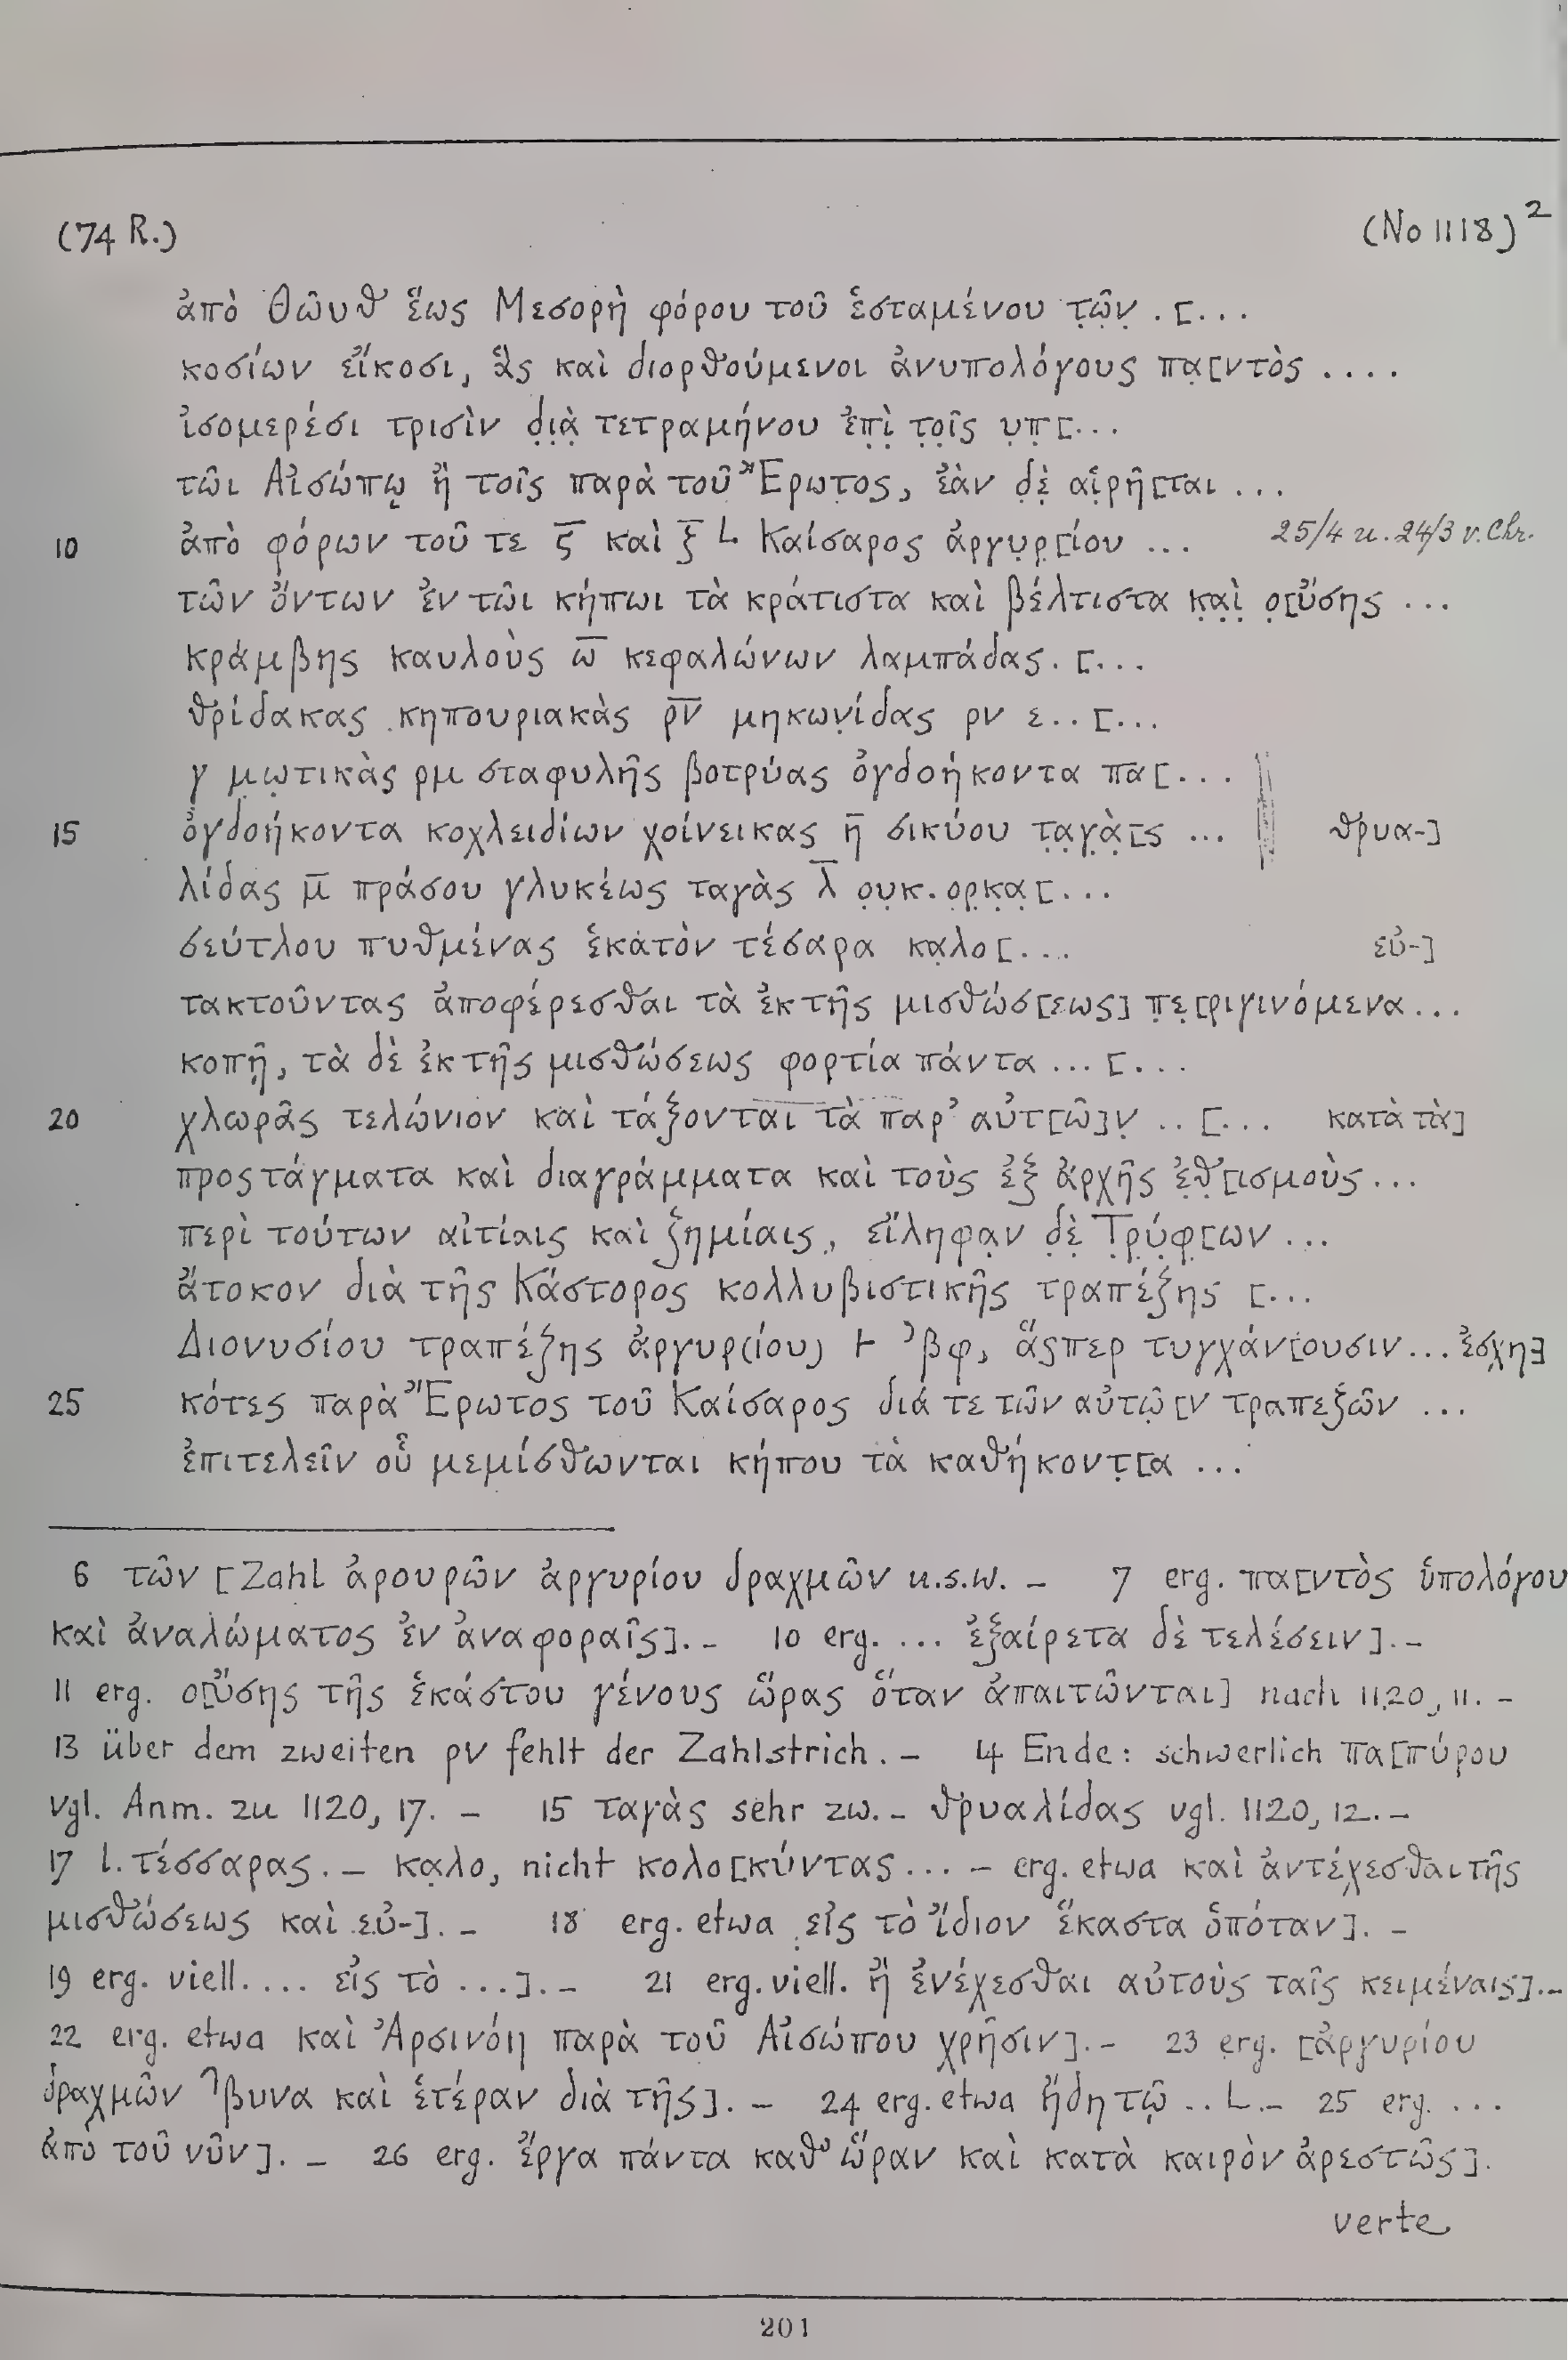 (74 R.) (No 1118)²
ἀπὸ Θῶυθ ἕως Μεσορὴ φόρου τοῦ ἑσταμένου τ̣ῶ̣ν̣ . [...
κοσίων εἴκοσι, ἃς καὶ διορθούμενοι ἀνυπολόγους πα̣[ντὸς ....
ἰσομερέσι τρισὶν δ̣ι̣ὰ̣ τετραμήνου ἐπ̣ὶ̣ τ̣ο̣ῖς υ̣π̣[...
τῶι Αἰσώπῳ ἢ τοῖς παρὰ τοῦ Ἔρωτ̣ος, ἐὰν δ̣ὲ̣ αἱ̣ρῆ[ται ...
10 ἀπὸ φόρων τοῦ τε ς̅ καὶ ζ̅ L Καίσαρος ἀργυ̣ρ̣[ίου ... 25/4 u. 24/3 v. Chr.
τῶν ὄντων ἐν τῶι κήπωι τὰ κράτιστα καὶ βέλτιστα κ̣α̣ὶ̣ ο̣[ὔσης ...
κράμβης καυλοὺς ω̅ κεφαλώνων λαμπάδας . [...
θρίδακας κηπουριακὰς ρ̅ν̅ μηκων̣ίδας ρν ε..[...
γ μω̣τικὰς ρμ σταφυλῆς βοτρύας ὀγδοήκοντα πα[...
15 ὀγδοήκοντα κοχλειδίων χοίνεικας η̅ σικύου τ̣α̣γ̣ὰ̣[ς ... θρυα-]
λίδας μ̅ πράσου γλυκέως ταγὰς λ̅ ο̣υ̣κ.ο̣ρ̣κ̣α̣[...
σεύτλου πυθμένας ἑκατὸν τέσαρα κα̣λο[... εὐ-]
τακτοῦντας ἀποφέρεσθαι τὰ ἐκ τῆς μισθώσ[εως] π̣ε̣[ριγινόμενα...
κοπῇ, τὰ δὲ ἐκ τῆς μισθώσεως φορτία πάντα ... [...
20 χλωρᾶς τελώνιον καὶ τάξονται τὰ παρ’ αὐτ[ῶ]ν̣ .. [... κατὰ τὰ]
προςτάγματα καὶ διαγράμματα καὶ τοὺς ἐξ ἀρχῆς ἐ̣θ̣[ισμοὺς ...
περὶ τούτων αἰτίαις καὶ ζημίαις, εἴληφα̣ν δ̣ὲ̣ Τ̣ρ̣ύ̣φ̣[ων ...
ἄτοκον διὰ τῆς Κάστορος κολλυβιστικῆς τραπέζης [...
Διονυσίου τραπέζης ἀργυρ(ίου) Ͱ ͵βφ, ἅςπερ τυγχάν[ουσιν ... ἐσχη]
25 κότες παρὰ Ἔρωτος τοῦ Καίσαρος διά τε τῶν αὐτῶ̣[ν τραπεζῶν ...
ἐπιτελεῖν οὗ μεμίσθωνται κήπου τὰ καθήκοντ̣[α ...
6 τῶν [Zahl ἀρουρῶν ἀργυρίου δραχμῶν u.s.w. – 7 erg. πα[ντὸς ὑπολόγου
καὶ ἀναλώματος ἐν ἀναφοραῖς]. – 10 erg. ... ἐξαίρετα δὲ τελέσειν]. –
11 erg. ο[ὔσης τῆς ἑκάστου γένους ὥρας ὅταν ἀπαιτῶνται] nach 1120, 11. –
13 über dem zweiten ρν fehlt der Zahlstrich. – 14 Ende: schwerlich πα[πύρου
vgl. Anm. zu 1120, 17. – 15 ταγὰς sehr zw. – θρυαλίδας vgl. 1120, 12. –
17 l. τέσσαρας. – κα̣λο, nicht κολο[κύντας ... – erg. etwa καὶ ἀντέχεσθαι τῆς
μισθώσεως καὶ εὐ-]. – 18 erg. etwa εἰς τὸ ἴδιον ἕκαστα ὁπόταν]. –
19 erg. viell. ... εἰς τὸ ...]. – 21 erg. viell. ἢ ἐνέχεσθαι αὐτοὺς ταῖς κειμέναις]. –
22 erg. etwa καὶ Ἀρσινόη παρὰ τοῦ Αἰσώπου χρῆσιν]. – 23 erg. [ἀργυρίου
δραχμῶν ͵βυνα καὶ ἑτέραν διὰ τῆς]. – 24 erg. etwa ἤδη τῷ .. L. – 25 erg. ...
ἀπὸ τοῦ νῦν]. – 26 erg. ἔργα πάντα καθ’ ὥραν καὶ κατὰ καιρὸν ἀρεστῶς].
verte
201